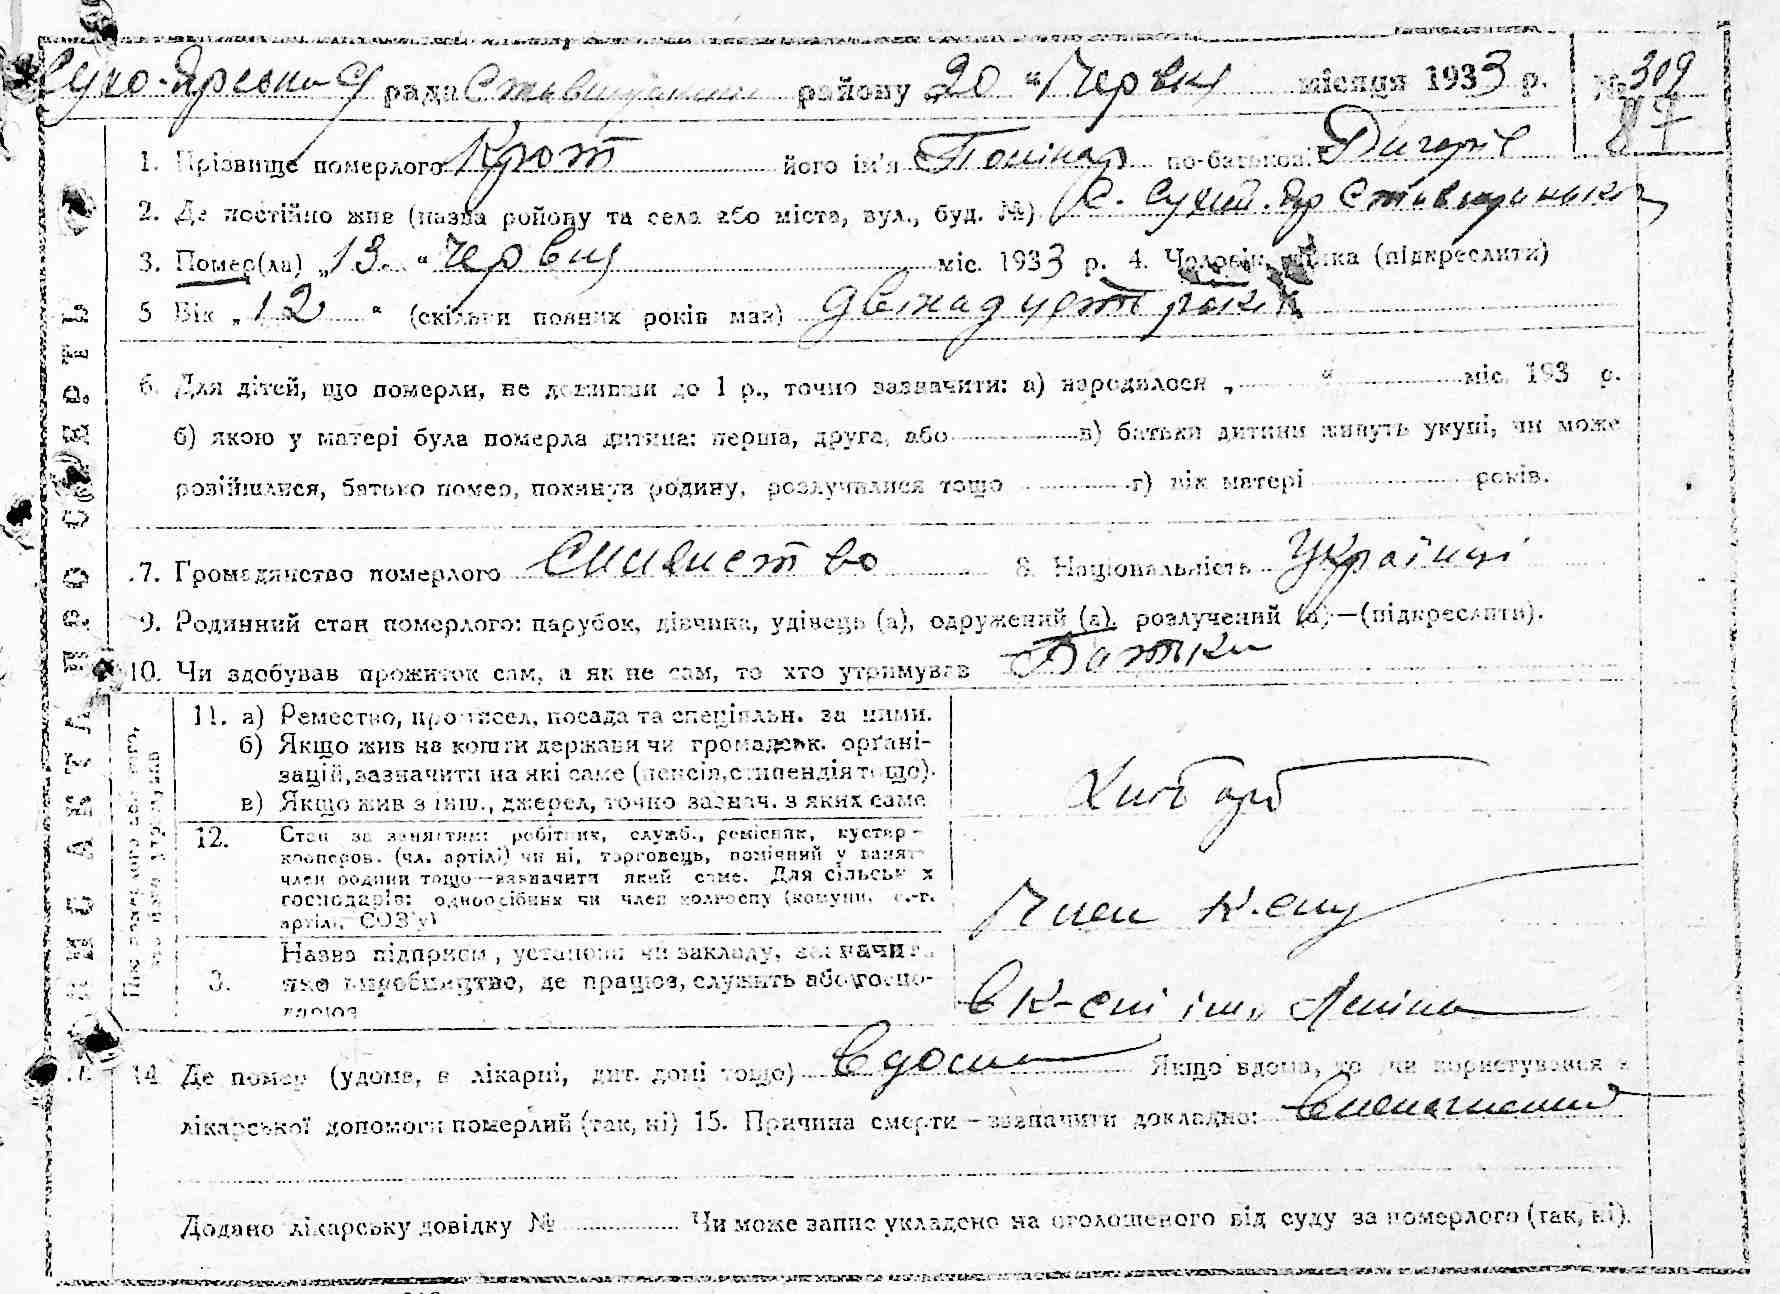 рада Ставищанськ району 20 "Червня місяця 1933 р. № 309
87
1. Прізвище померлого Крот його ім'я по-батькові
2. Де постійно жив (назва району та села або міста, вул., буд. №) с. Сухий-Яр Ставищанськ
3. Помер(ла) „13 " Червня міс. 1933 р. 4. Чоловік, жінка (підкреслити)
5 Вік „12" (скільки повних років мав) двенадцять років
6. Для дітей, що померли, не доживши до 1 р., точно зазначити: а) народилося „ " міс. 193 р.
б) якою у матері була померла дитина: перша, друга, або в) батьки дитини живуть укупі, чи може
розійшлися, батько помер, покинув родину, розлучилися тощо г) вік матері років.
7. Громадянство померлого 8. Національність Україньці
9. Родинний стан померлого: парубок, дівчина, удівець (а), одружений (а), розлучений (а)—(підкреслити).
10. Чи здобував прожиток сам, а як не сам, то хто утримував Батьки
11. а) Ремество, промисел, посада та спеціяльн. за ними.
б) Якщо жив на кошти держави чи громадськ. органі-
зацій, зазначити на які саме (пенсія, стипендія тощо).
в) Якщо жив з інш., джерел, точно зазнач. з яких саме
Хлібороб
12. Стан за заняттям: робітник, служб., ремісник, кустар-
кооперов. (чл. артілі) чи ні, торговець, помічний у занят-
член родини тощо—зазначити який саме. Для сільськ х
господарів: одноосібник чи член колгоспу (комуни, с.-г.
артілі, СОЗ'у)
Член к-спу
3. Назва підприєм, установи чи закладу, зазначити
яке виробництво, де працює, служить або госпо-
дарює
в к-спі ім. Леніна
14 Де помер (удома, в лікарні, дит. домі тощо) вдома Якщо вдома, то чи користувався з
лікарської допомоги померлий (так, ні) 15. Причина смерти – зазначити докладно:
Додано лікарську довідку № Чи може запис укладено на оголошеного від суду за померлого (так, ні).